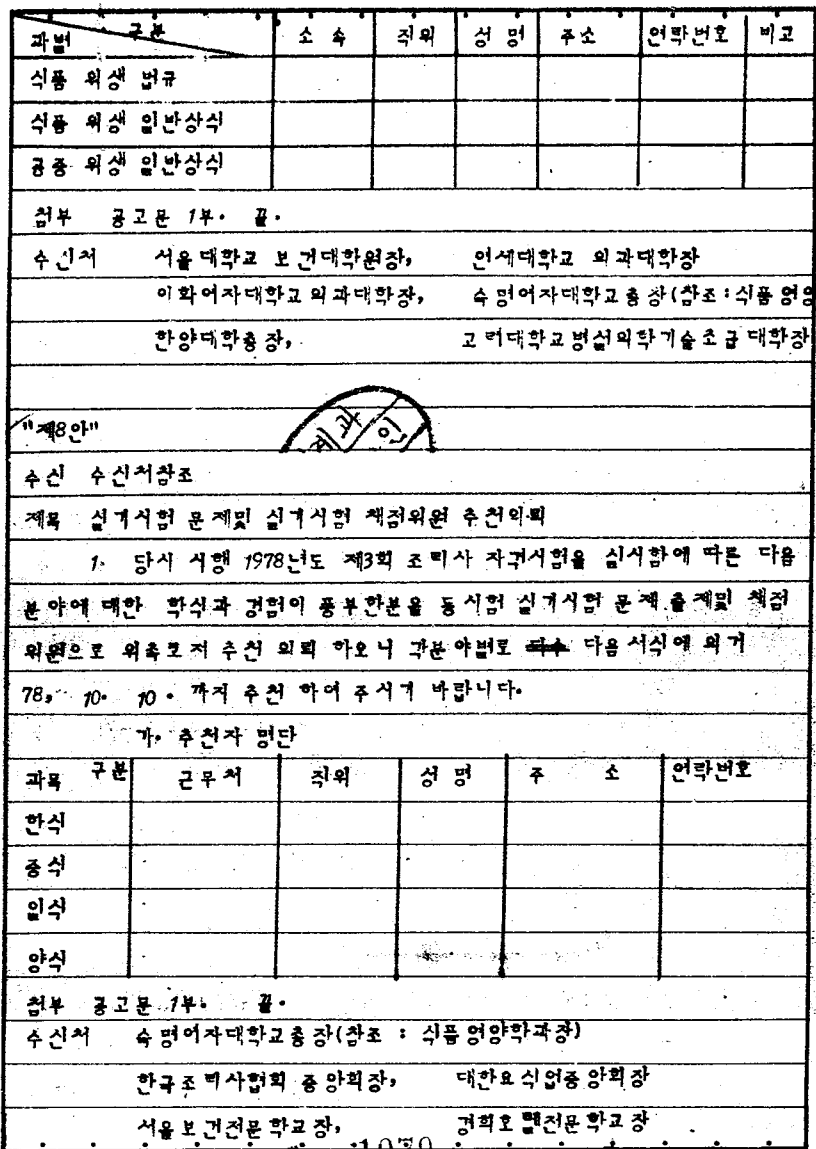 과별 구분 소속 직위 성명 주소 연락번호 비고
식품 위생 법규
식품 위생 일반상식
공중 위생 일반상식
첨부 공고문 1부. 끝.
수신처 서울대학교 보건대학원장, 연세대학교 의과대학장
이화여자대학교의과대학장, 숙명여자대학교총장(참조:식품영양
한양대학총장, 고려대학교병설의학기술초급대학장
"제8안"
수신 수신처참조
제목 실기시험 문제및 실기시험 채점위원 추천의뢰
1. 당시 시행 1978년도 제3회 조리사 자격시험을 실시함에 따른 다음
분야에 대한 학식과 경험이 풍부한분을 동시험 실기시험 문제출제및 채점
위원으로 위촉코저 추천 의뢰 하오니 각분야별로 다음 서식에 의거
78, 10. 10. 까지 추천 하여 주시기 바랍니다.
가. 추천자 명단
과목 구분 근무처 직위 성명 주 소 연락번호
한식
중식
일식
양식
첨부 공고문 1부. 끝.
수신처 숙명여자대학교총장(참조 : 식품영양학과장)
한국조리사협회 중앙회장, 대한요식업중앙회장
서울보건전문학교장, 경희호텔전문학교장